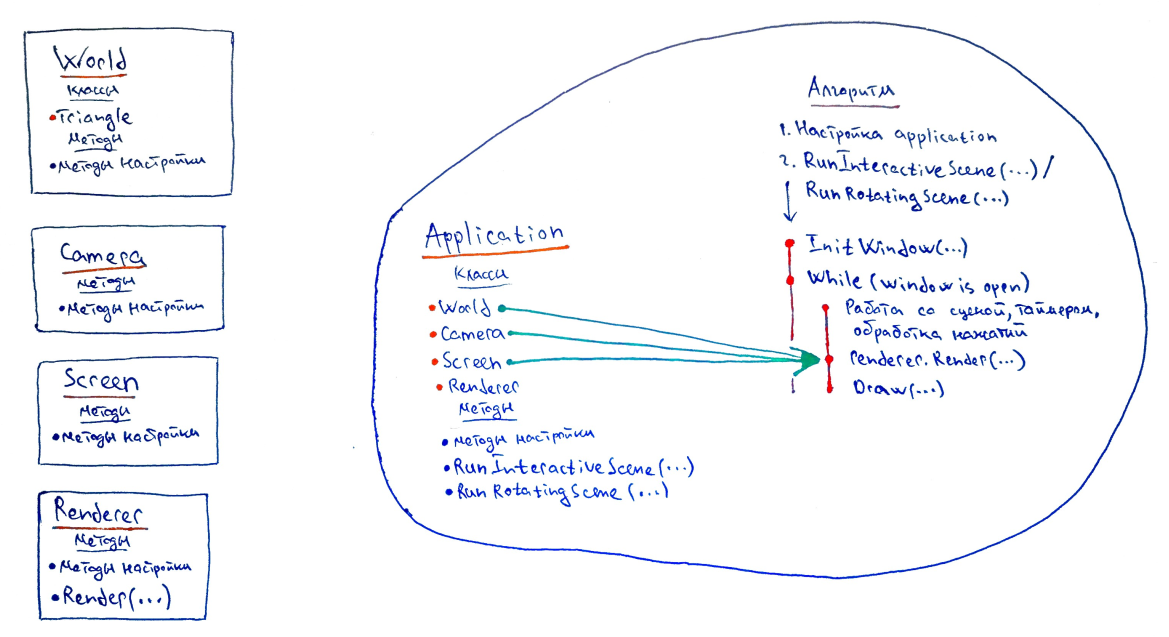 World
Классы
•Triangle
Методы
•Методы настройки
Camera
Методы
•Методы настройки
Screen
Методы
•Методы настройки
Renderer
Методы
•Методы настройки
•Render(...)
Application
Классы
•World
•Camera
•Screen
•Renderer
Методы
•Методы настройки
•RunInteractiveScene(...)
•RunRotatingScene(...)
Алгоритм
1. Настройка application
2. RunInteractiveScene(...) /
RunRotatingScene(...)
InitWindow(...)
While (window is open)
Работа со сценой, таймером,
обработка нажатий
renderer.Render(...)
Draw(...)